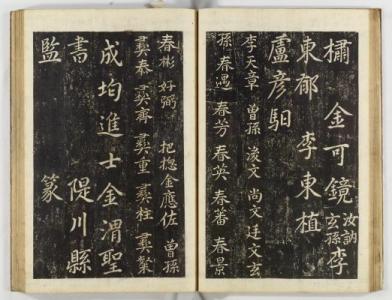 橚 金可鏡 汝訥
玄孫 李
東郁 李東植
盧彥馹
李天章 曾孫 浚文 尚文 廷文 玄
孫 春遇 春芳 春英 春蕃 春景
春彬 好弼 把摠金應佐 曾孫
奉 齊 重 柱
成均進士金渭聖
書 隄川縣
監 篆